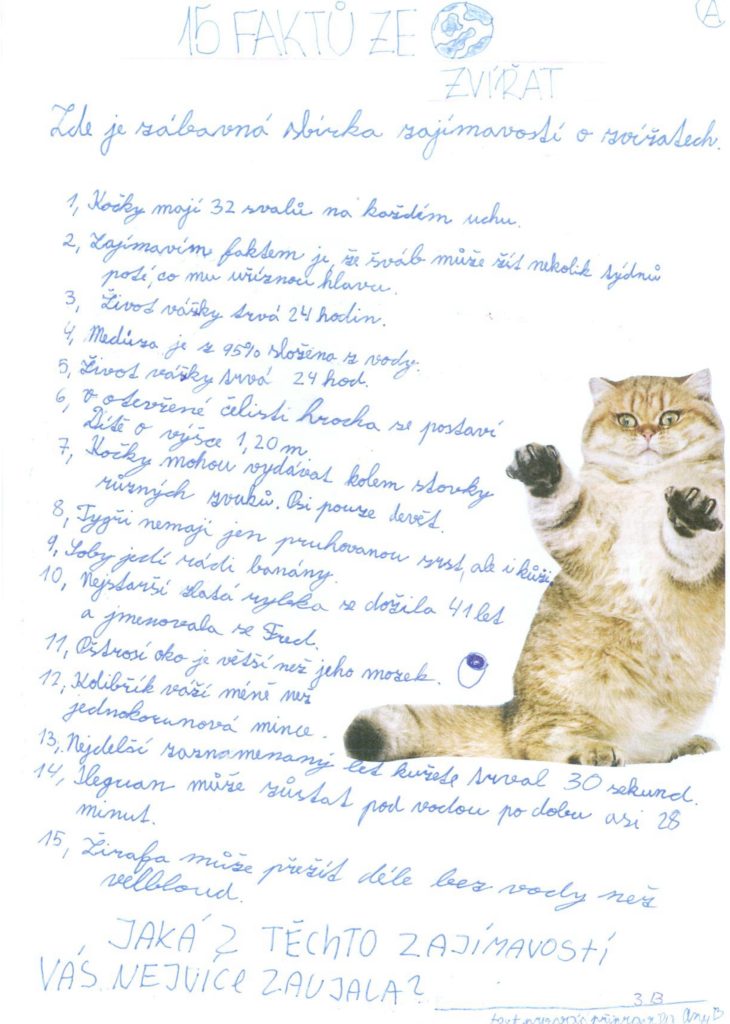 A
15 FAKTŮ ZE
ZVÍŘAT
Zde je zábavná sbírka zajímavostí o zvířatech.
1, Kočky mají 32 svalů na každém uchu.
2, Zajímavím faktem je, že šváb může žít nekolik týdnů
poté, co mu uříznou hlavu.
3, Život vážky trvá 24 hodin.
4, Medúza je z 95% složena z vody.
5, Život vážky trvá 24 hod.
6, V otevřené čelisti hrocha se postaví
Dítě o výšce 1,20 m.
7, Kočky mohou vydávat kolem stovky
různých zvuků. Psi pouze devět.
8, Tygři nemají jen pruhovanou srst, ale i kůži.
9, Soby jedí rádi banány.
10, Nejstarší zlatá rybka se dožila 41 let
a jmenovala se Fred.
11, Pštrosí oko je větší než jeho mozek.
12, Kolibřík váží méně než
jednokorunová mince.
13, Nejdelší zaznamenaný let kuřete trval 30 sekund.
14, Ileguan může zůstat pod vodou po dobu asi 28
minut.
15, Žirafa může přežít déle bez vody než
velbloud.
JAKÁ Z TĚCHTO ZAJÍMAVOSTÍ
VÁS NEJVÍCE ZAUJALA?
3.B